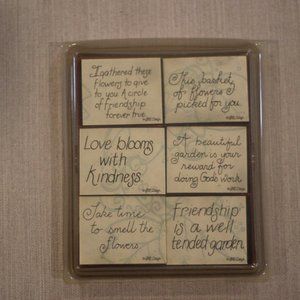 I gathered these
flowers to give
to you A circle
of friendship
forever true.
This basket
of flowers I
picked for you.
Love blooms
with
kindness
A beautiful
garden is your
reward for
doing God's work
Take time
to smell the
flowers.
Friendship
is a well
tended garden.